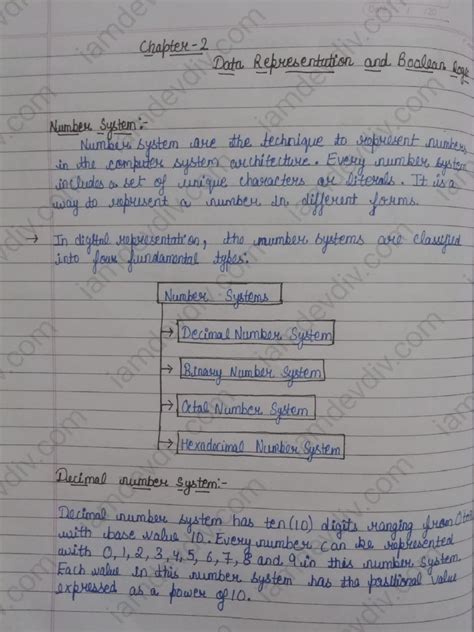 Chapter-2
Data Representation and Boolean Logic
Number System:-
Number system are the technique to represent numbers
in the computer system architecture. Every number system
includes a set of unique characters or literals. It is a
way to represent a number in different forms.
→ In digital representation, the number systems are classified
into four fundamental types:
Number Systems
→ Decimal Number System
→ Binary Number System
→ Octal Number System
→ Hexadecimal Number System
Decimal number System:-
Decimal number system has ten(10) digits ranging from 0 to 9
with base value 10. Every number can be represented
with 0, 1, 2, 3, 4, 5, 6, 7, 8 and 9 in this number system.
Each value in this number system has the positional value
expressed as a power of 10.
iamdevdiv.com